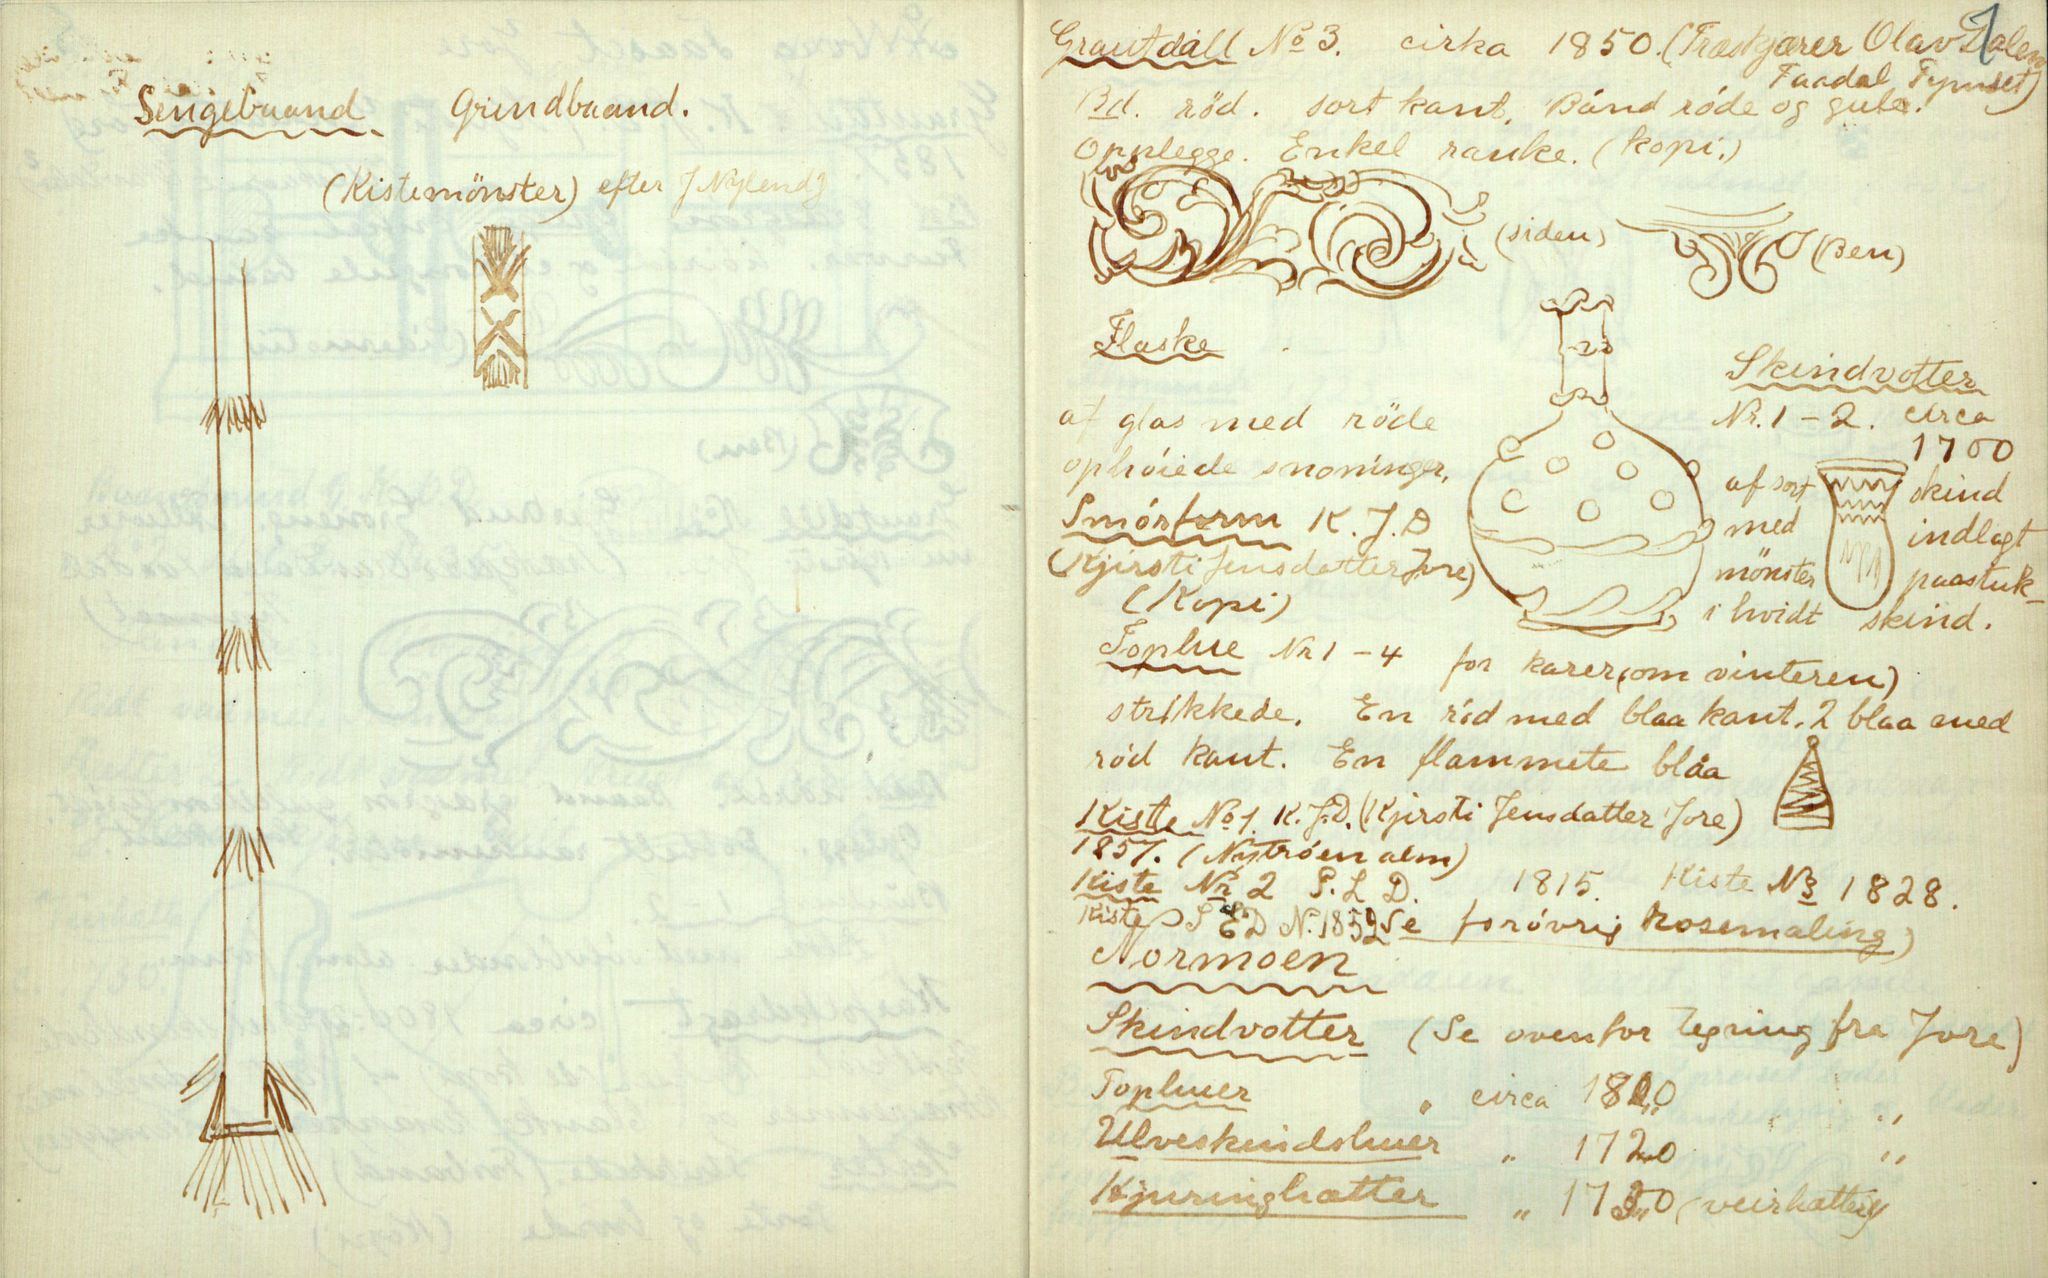 Sengebaand Grindbaand.
(Kistemönster) efter J Nylend
7
Grautdall No 3. cirka 1850. (Træskjærer Olav Dalen
Faadal Tynset)
Bd. röd. sort kant. Bånd röde og gule.
Opplegge. Enkel ranke. (Kopi.)
(siden) (Ben)
Flaske
af glas med röde
ophöiede snoninger.
Skindvotter
Nr. 1 – 2. circa
1700
af sort skind
med indlagt
mönster paastuk-
i hvidt skind.
Smörform K. J. D
(Kjirsti Jensdatter Jore)
(Kopi)
Toplue Nr 1 – 4 for karer (om vinteren)
strikkede. En röd med blaa kant. 2 blaa med
röd kant. En flammete blåa
Kiste No 1. K. J. D. (Kjirsti Jensdatter Jore)
1857. (Nytröen alm)
Kiste Nr 2 P. L D. 1815. Kiste N 3 1828.
Kiste S E D N. 1852 Se forövrig Rosemaling)
Normoen
Skindvotter (Se ovenfor Tegning fra Jore)
Topluer " circa 1820 "
Ulveskindshuer " 1720 "
Kjuringhatter " 1750 (veirhatter)